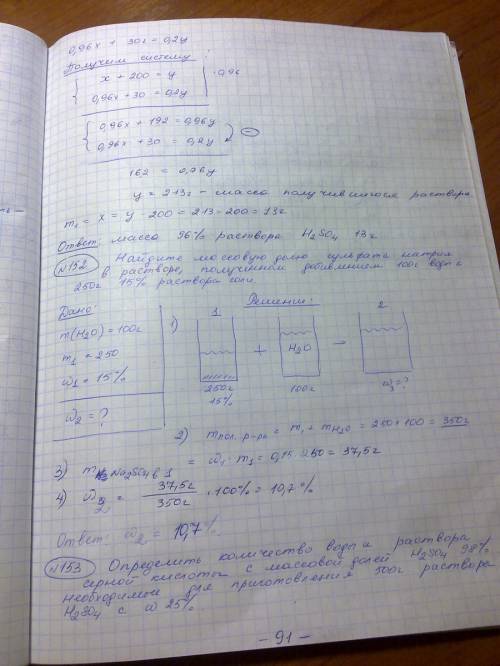 0,96x + 30г = 0,2y
Получим систему:
x + 200 = y | ·0,96
0,96x + 30 = 0,2y
0,96x + 192 = 0,96y
0,96x + 30 = 0,2y ⊖
162 = 0,76y
y = 213г – масса получившегося раствора
m₁ = x = y - 200 = 213 - 200 = 13г
Ответ: масса 96% раствора H₂SO₄ 13г
№152 Найдите массовую долю сульфата натрия
в растворе, полученном добавлением 100г воды к
250г 15% раствора соли
Дано:
m(H₂O) = 100г
m₁ = 250
ω₁ = 15%
ω₂ = ?
Решение:
1) 1 2
+ H₂O →
250г 100г ω₂ = ?
15%
2) mпол. р-ра = m₁ + mH₂O = 250 + 100 = 350г
3) m Na₂SO₄ в 1 = ω₁ · m₁ = 0,15 · 250 = 37,5г
4) ω₂ = 37,5г / 350г · 100% = 10,7%
Ответ: ω₂ = 10,7%.
№153 Определить количество воды и раствора
серной кислоты с массовой долей H₂SO₄ 98%
необходимое для приготовления 500г раствора
H₂SO₄ с ω 25%
– 91 –